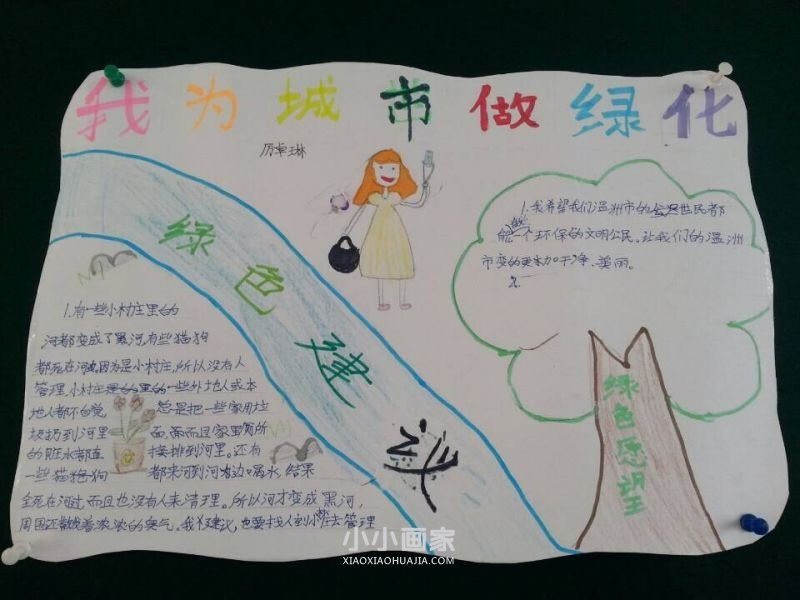 我为城市做绿化
厉卓琳
绿色建议
1.我希望我们温洲市的居民都
能做一个环保的文明公民。让我们的温洲
市变的更加干净、美丽。
2.
绿色愿望
1.有一些小村庄里的
河都变成了黑河,有些猫狗
都死在河边,因为是小村庄,所以没有人
管理,小村庄里的一些外地人或本
地人都不自觉 总是把一些家用垃
圾扔到河里 面,而且家里厕所
的脏水都直 接排到河里。还有
一些猫狗 都来河边喝水,结果
全死在河边,而且也没有人来清理。所以河才变成黑河,
周围还散发着浓浓的臭气。我建议,也要找人到小村庄去管理
小小画家
XIAOXIAOHUAJIA.COM